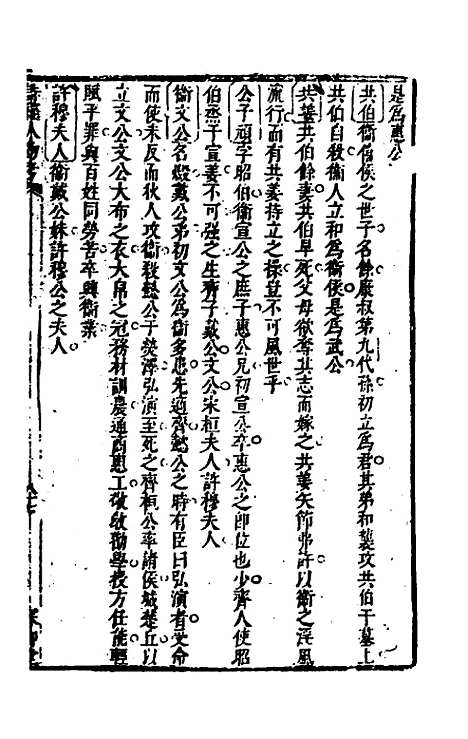 是為惠公
共伯衞僖侯之世子名餘康叔第九代孫初立為君其弟和襲攻共伯于墓上
共伯自殺衞人立和為衞侯是為武公
共姜共伯餘妻共伯早死父母欲奪其志而嫁之共姜矢節弗許以衞之淫風
流行而有共姜特立之操豈不可風世乎
公子頑字昭伯衞宣公之庶子惠公兄初宣公卒惠公之即位也少齊人使昭
伯烝于宣姜不可强之生齊子戴公文公宋桓夫人許穆夫人
衞文公名燬戴公弟初文公為衞多患先適齊懿公之時有臣曰弘演者受命
而使未反而狄人攻衞殺懿公于熒澤弘演至死之齊桓公率諸侯城楚丘以
立文公文公大布之衣大帛之冠務材訓農通商惠工敬敎勸學授方任能輕
賦平罪與百姓同勞苦卒興衞業
許穆夫人衞戴公妹許穆公之夫人
詩經人物考